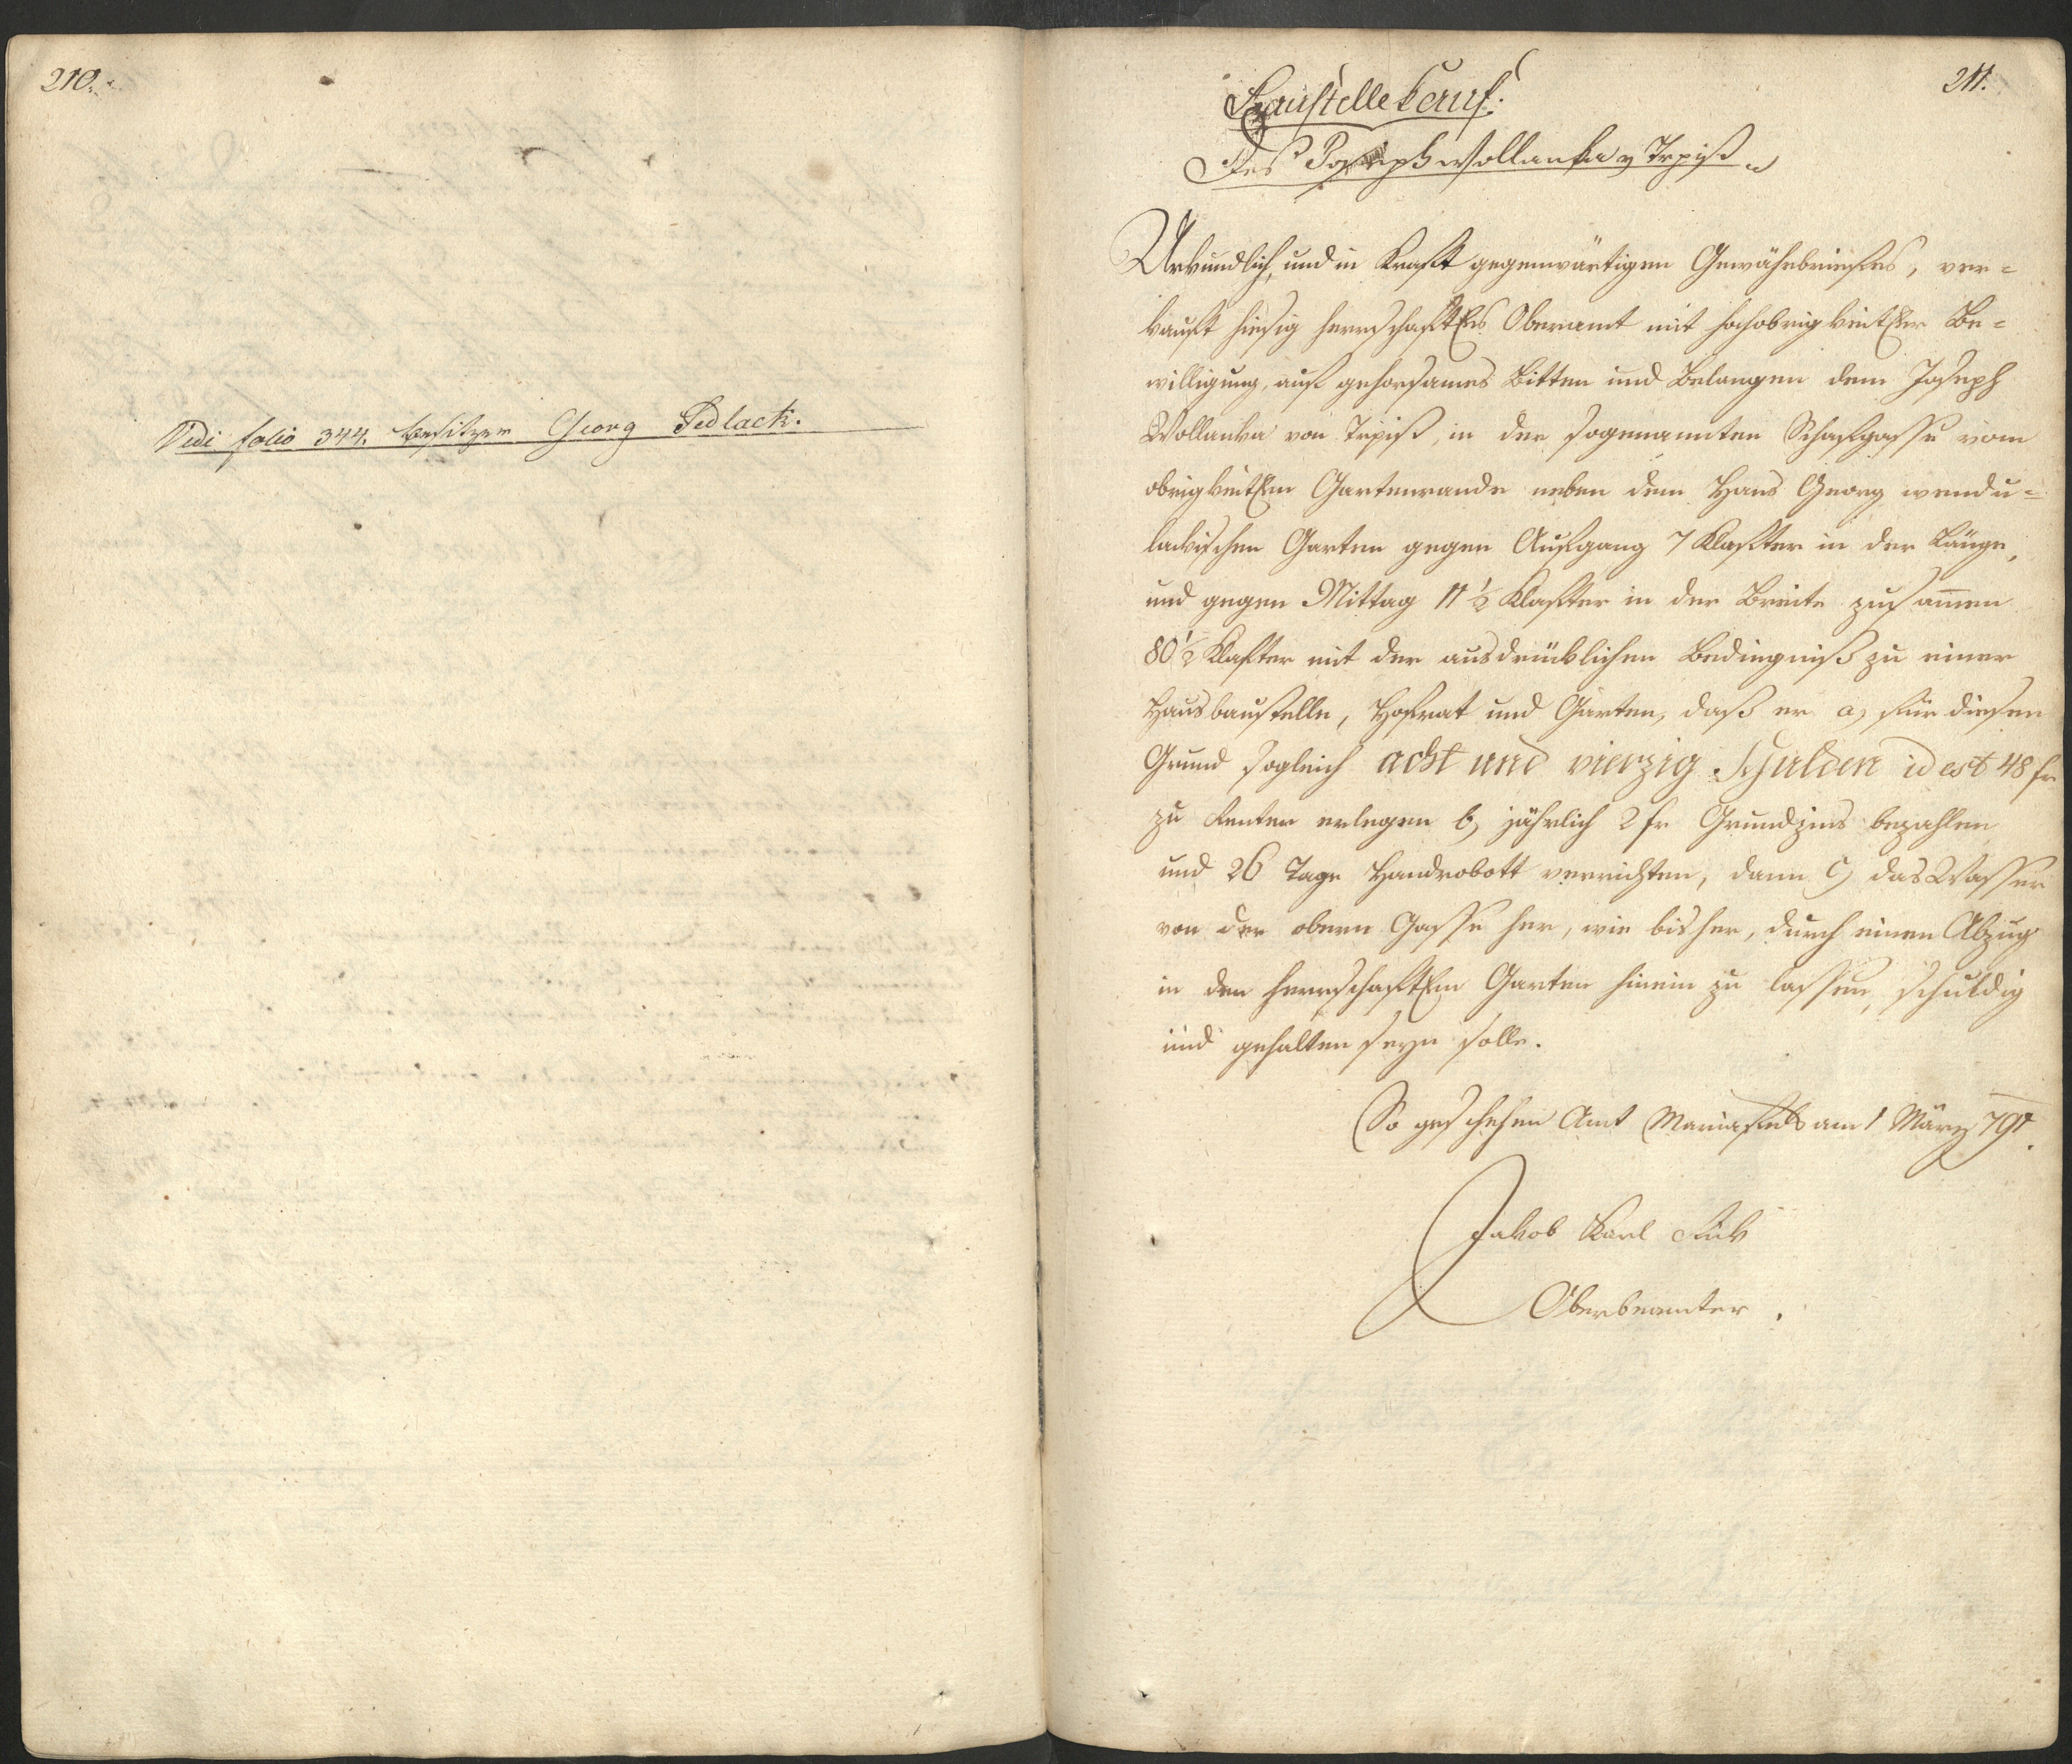 210.
Vidi folio 344. besitzer Georg Sedlack.
211.
Baustelle Kauf.
Des Joseph Wollanka v Trpist
Urkundlich, und in Kraft gegenwärtigen Gewährbriefes, ver=
kauft hiesig herrschaftles Oberamt mit hochobrigkeitler Be=
willigung, auf gehorsames Bitten und Belangen dem Joseph
Wollanka von Trpist, in der sogenannten Schafgasse vom
obrigkeitlen Gartenrande neben dem Hans Georg wendu=
lakischen Garten gegen Aufgang 7 Klafter in der Länge,
und gegen Mittag 11 1/2 Klafter in der Breite zusam̄en
80 1/2 Klafter mit der ausdrüklichen Bedingniß zu einer
Hausbaustelle, Hofrat und Garten, daß er a) für diesen
Grund sogleich acht und vierzig Gulden id est 48 fr
zu Renten erlegen b) jährlich 2 fr Grundzins bezahlen
und 26 Tage Handrobott verrichten, dann c) das Wasser
von der obern Gasse her, wie bisher, durch einen Abzug
in den herrschaftlen Garten hinein zu lassen, schuldig
und gehalten seyn solle.
So geschehen Amt Mariafels am 1 März 791.
Jakob Karl
Oberbeamter.